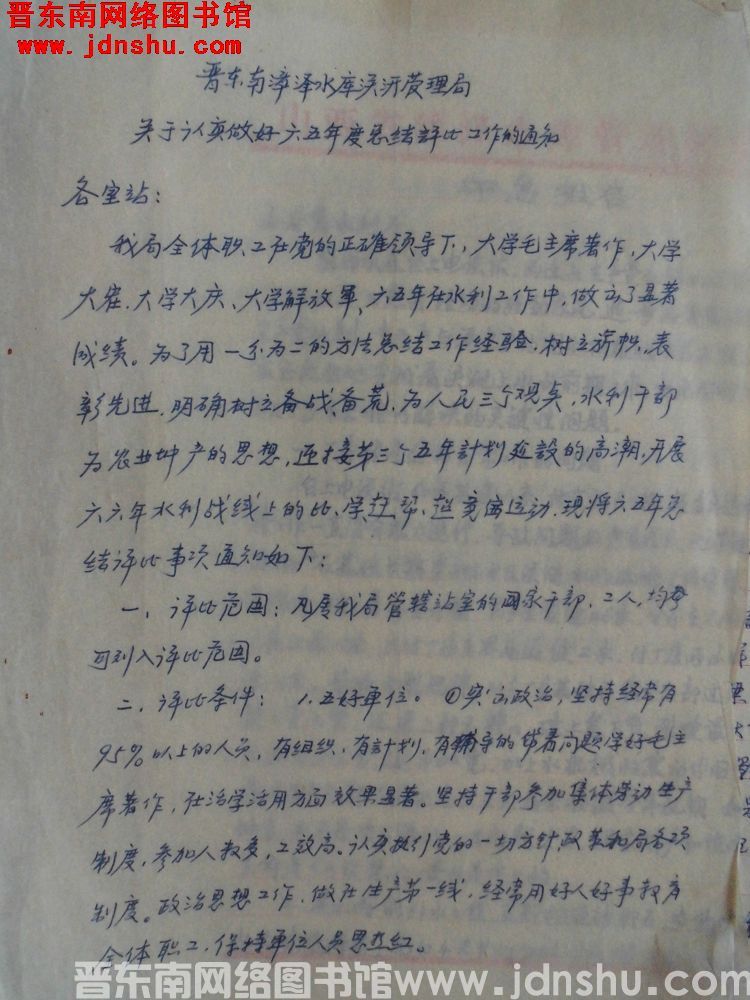 晋东南网络图书馆
www.jdnshu.com
晋东南漳泽水库灌溉管理局
关于认真做好六五年度总结评比工作的通知
各室站：
我局全体职工在党的正确领导下，大学毛主席著作，大学
大寨、大学大庆、大学解放軍、六五年在水利工作中，做出了显著
成绩。为了用一分为二的方法总结工作经验，树立旂帜，表
彰先进，明确树立备战、备荒、为人民三个观点，水利干部
为农业增产的思想，迎接第三个五年計划建設的高潮，开展
六六年水利战线上的比、学、赶、帮、超竞赛运动，现将六五年总
结评比事项通知如下：
一、评比范围：凡属我局管辖站室的国家干部、工人，均
可列入评比范围。
二、评比条件：1.五好单位。①突出政治，坚持经常有
95%以上的人员，有组织、有計划、有辅导的带着问题学好毛主
席著作，在活学活用方面效果显著。坚持干部参加集体劳动生产
制度，参加人数多，工效高。认真执行党的一切方針政策和局各项
制度。政治思想工作，做在生产第一线，经常用好人好事教育
全体职工，保持单位人员思想红。
晋东南网络图书馆www.jdnshu.com